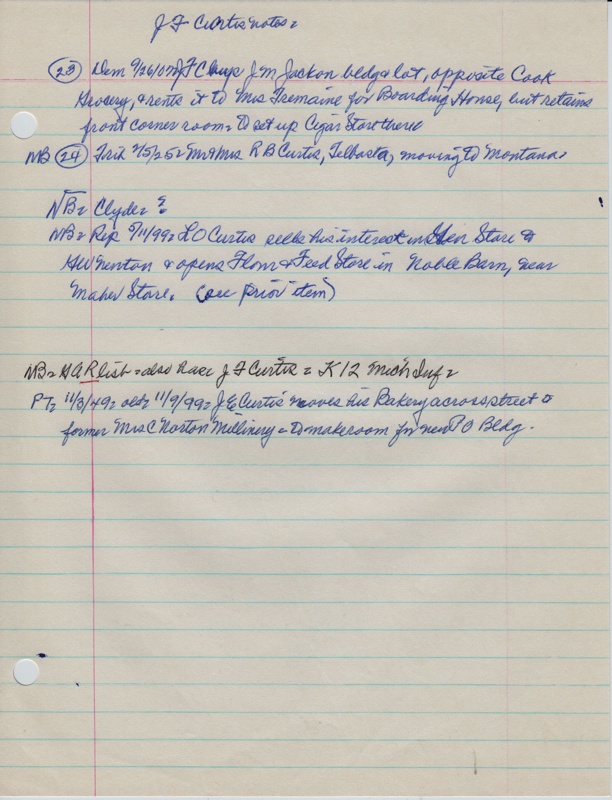 J F Curtis notes =
(23) Dem 9/26/07 = J F C buys J M Jackson bldg & lot, opposite Cook
Grocery, & rents it to Mrs Tremaine for Boarding House, but retains
front corner room = to set up Cigar Store there
NB (24) Trib 2/5/25 = Mr & Mrs R B Curtis, Telbasta, moving to Montana =
NB = Clyde = ?
NB = Rep 5/11/99 = L O Curtis sells his interest in Store to
& opens Flour & Feed Store in Noble Barn, near
Maher Store. (see prior item)
NB = G A R list = also have J F Curtis = K 12 Mich Inf =
PT = 11/3/49 = old = 11/9/99 = J E Curtis moves his Bakery across street to
former Mrs C Norton Millinery = to make room for new P O Bldg.